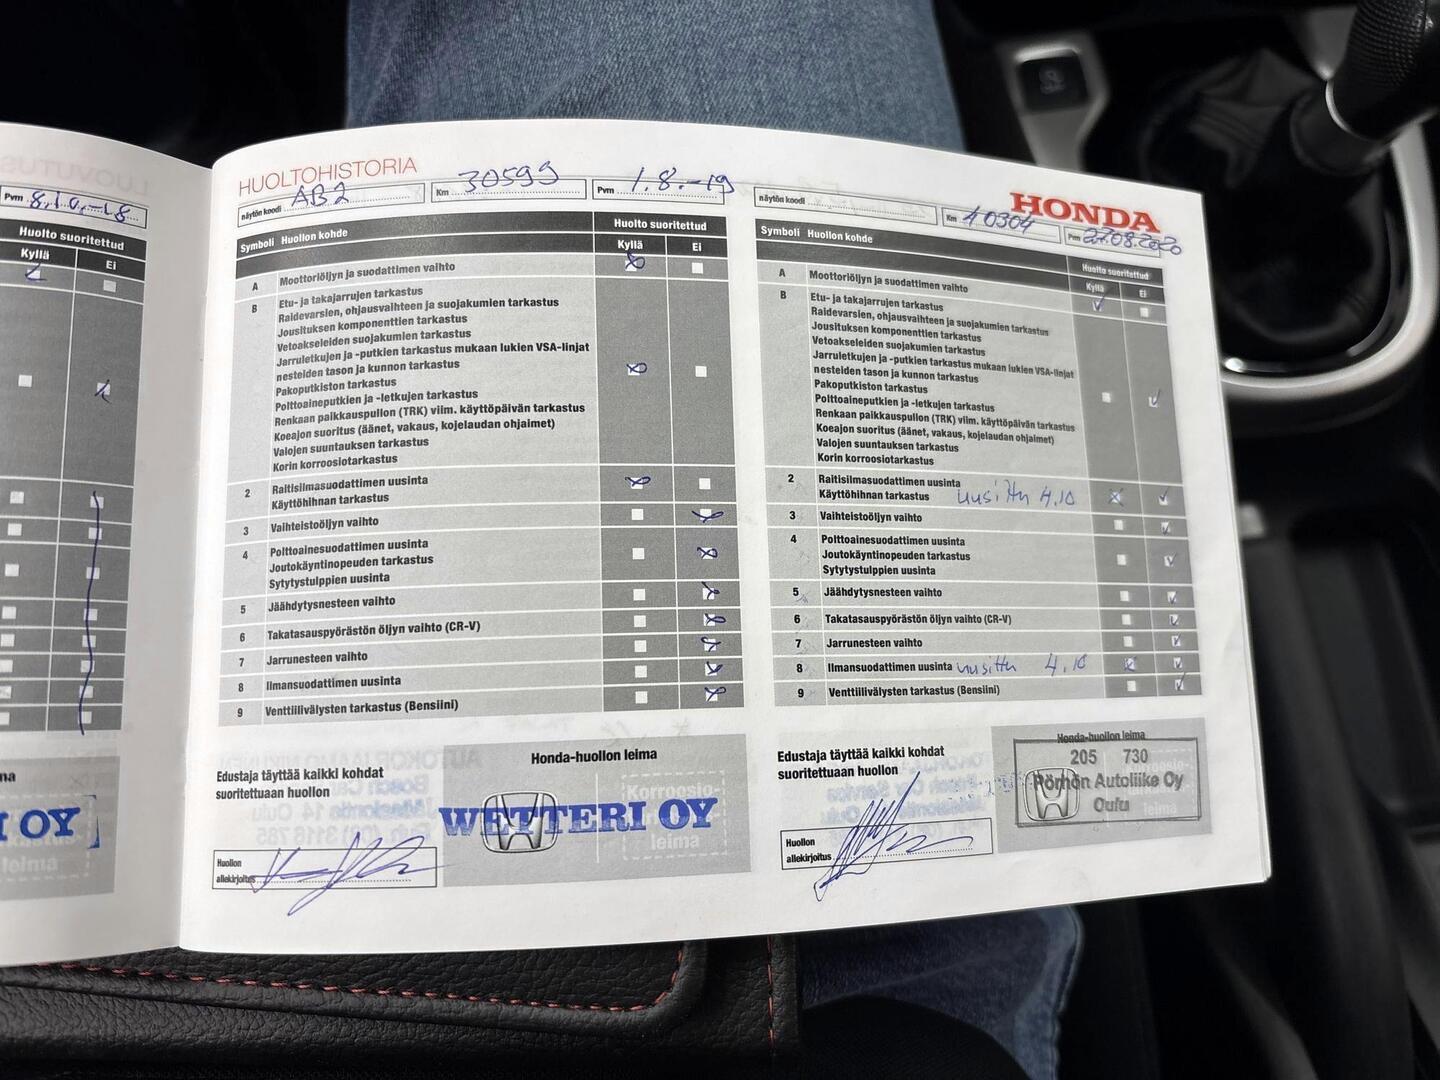 Pvm 8.10.-18
Huolto suoritettud
Kyllä Ei
HUOLTOHISTORIA
näytön koodi AB2 Km 30599 Pvm 1.8.-19
Symboli Huollon kohde Huolto suoritettud
Kyllä Ei
A Moottoriöljyn ja suodattimen vaihto
B Etu- ja takajarrujen tarkastus
Raidevarsien, ohjausvaihteen ja suojakumien tarkastus
Jousituksen komponenttien tarkastus
Vetoakseleiden suojakumien tarkastus
Jarruletkujen ja -putkien tarkastus mukaan lukien VSA-linjat
nesteiden tason ja kunnon tarkastus
Pakoputkiston tarkastus
Polttoaineputkien ja -letkujen tarkastus
Renkaan paikkauspullon (TRK) viim. käyttöpäivän tarkastus
Koeajon suoritus (äänet, vakaus, kojelaudan ohjaimet)
Valojen suuntauksen tarkastus
Korin korroosiotarkastus
2 Raitisilmasuodattimen uusinta
Käyttöhihnan tarkastus
3 Vaihteistoöljyn vaihto
4 Polttoainesuodattimen uusinta
Joutokäyntinopeuden tarkastus
Sytytystulppien uusinta
5 Jäähdytysnesteen vaihto
6 Takatasauspyörästön öljyn vaihto (CR-V)
7 Jarrunesteen vaihto
8 Ilmansuodattimen uusinta
9 Venttiilivälysten tarkastus (Bensiini)
Edustaja täyttää kaikki kohdat
suoritettuaan huollon
Honda-huollon leima
WETTERI OY
Korroosio-
leima
Huollon
allekirjoitus
HONDA
näytön koodi Km 40304 Pvm 27.08.2020
Symboli Huollon kohde Huolto suoritettud
Kyllä Ei
A Moottoriöljyn ja suodattimen vaihto
B Etu- ja takajarrujen tarkastus
Raidevarsien, ohjausvaihteen ja suojakumien tarkastus
Jousituksen komponenttien tarkastus
Vetoakseleiden suojakumien tarkastus
Jarruletkujen ja -putkien tarkastus mukaan lukien VSA-linjat
nesteiden tason ja kunnon tarkastus
Pakoputkiston tarkastus
Polttoaineputkien ja -letkujen tarkastus
Renkaan paikkauspullon (TRK) viim. käyttöpäivän tarkastus
Koeajon suoritus (äänet, vakaus, kojelaudan ohjaimet)
Valojen suuntauksen tarkastus
Korin korroosiotarkastus
2 Raitisilmasuodattimen uusinta
Käyttöhihnan tarkastus uusittu 4.10
3 Vaihteistoöljyn vaihto
4 Polttoainesuodattimen uusinta
Joutokäyntinopeuden tarkastus
Sytytystulppien uusinta
5 Jäähdytysnesteen vaihto
6 Takatasauspyörästön öljyn vaihto (CR-V)
7 Jarrunesteen vaihto
8 Ilmansuodattimen uusinta uusittu 4.10
9 Venttiilivälysten tarkastus (Bensiini)
Edustaja täyttää kaikki kohdat
suoritettuaan huollon
Honda-huollon leima
205 730
Pörhön Autoliike Oy
Oulu
Huollon
allekirjoitus